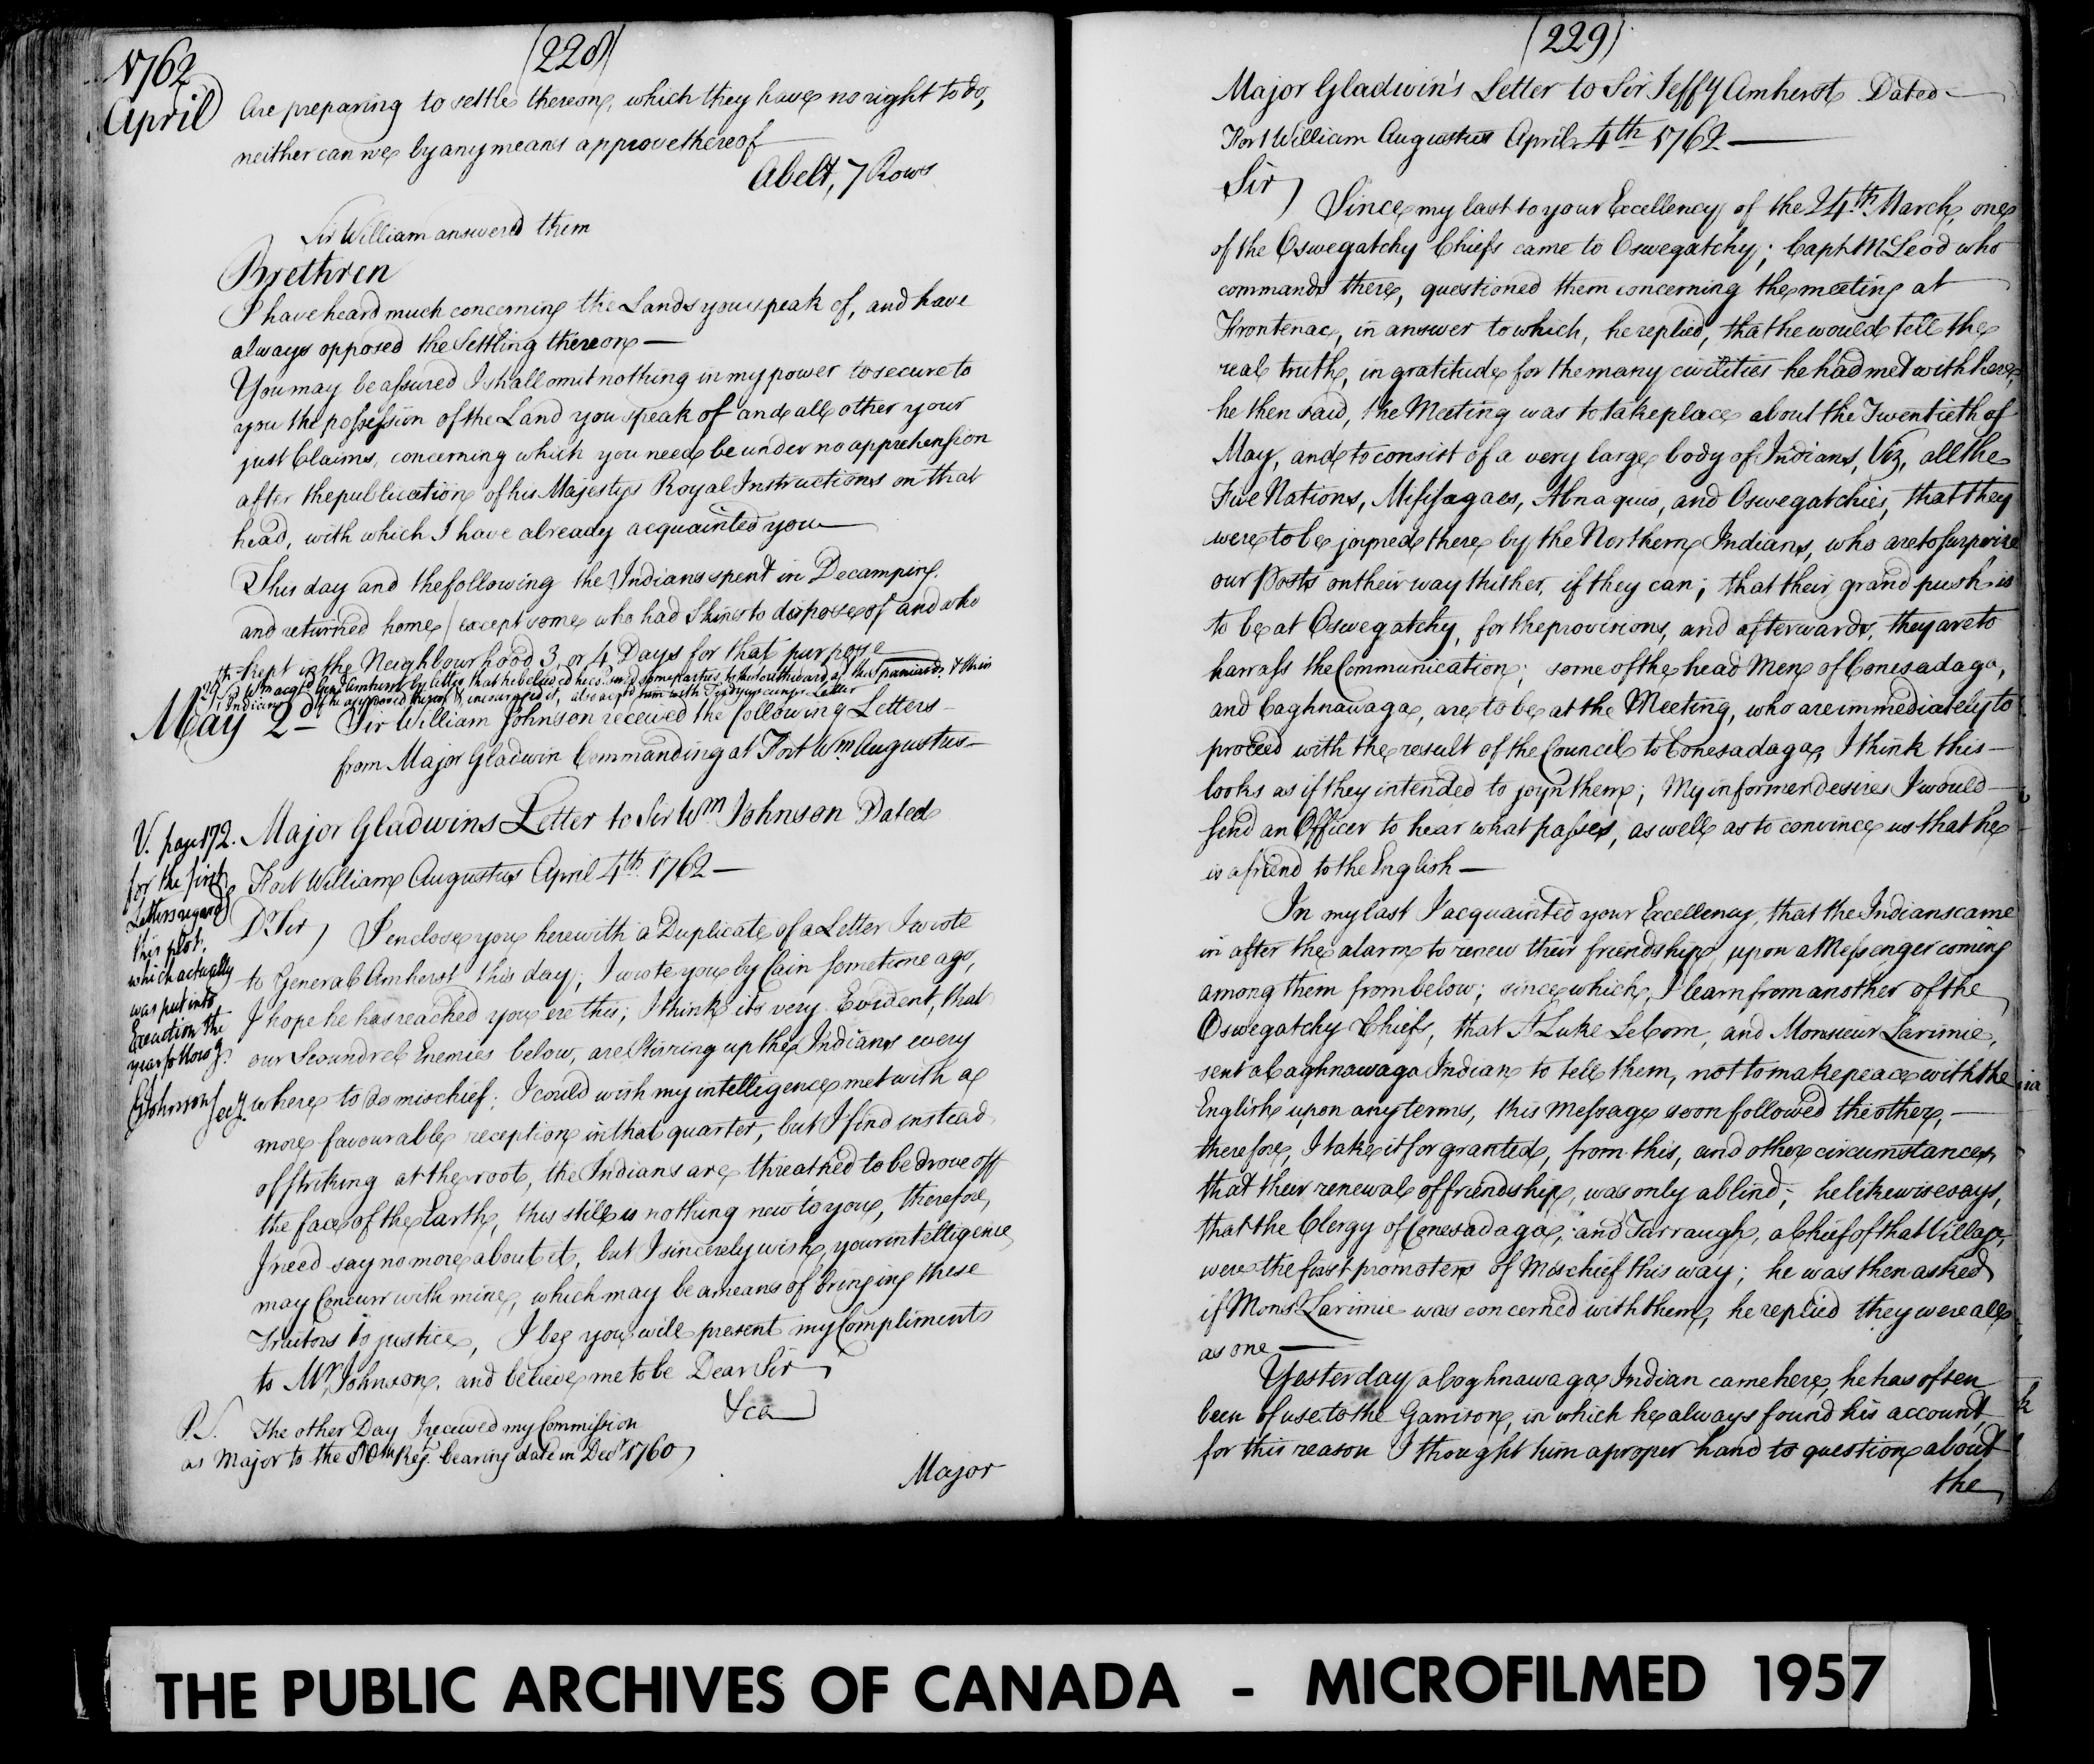 1762
April
(228)
are preparing to settle thereon, which they have no right to do,
neither can we by any means approve thereof
Abelt, 7 Rows
Sir William answered them
Brethren
I have heard much concerning the Lands you speak of, and have
always opposed the Settling thereon —
You may be assured I shall omit nothing in my power to secure to
you the possession of the Land you speak of and all other your
just Claims, concerning which you need be under no apprehension
after the publication of his Majestys Royal Instructions on that
head, with which I have already acquainted you —
This day and the following the Indians spent in Decamping.
and returned home / except some who had Skins to dispose of and who
kept in the Neighbourhood 3, or 4 Days for that purpose
29th Sr Wm acqd Genl Amherst by letter that he believed he could send some parties to the Southward agt the Spaniards & their
Indians if he approved thereof & encouraged it, also acqd him with Teedyuscungs Letter
May 2d — Sir William Johnson received the following Letters —
from Major Gladwin Commanding at Fort Wm. Augustus —
V. page 172.
for the first
Letters regardg
this plot.
which actually
was put into
Execution the
year followg.
GJohnson Secy.
Major Gladwins Letter to Sir Wm Johnson Dated
Fort William Augustus April 4th. 1762 —
Dr. Sir ) I enclose you herewith a Duplicate of a Letter I wrote
to General Amherst this day; I wrote you by Cain sometime ago,
I hope he has reached you ere this; I think its very Evident, that
our Scoundrel Enemies below, are Stirring up the Indians every
where to do mischief; I could wish my intelligence met with a
more favourable reception in that quarter, but I find instead
of striking at the root, the Indians are threatned to be drove off
the face of the Earth, this still is nothing new to you, therefore,
I need say no more about it, but I sincerely wish, your intelligence
may Concurr with mine, which may be a means of bringing these
Traitors to justice, I beg you will present my Compliments
to Mr. Johnson, and believe me to be Dear Sir
&ca
P.S. The other Day I received my Commission
as Major to the 80th Regt. bearing date in Decr 1760
Major
(229)
Major Gladwin's Letter to Sir Jeffy Amherst Dated —
Fort William Augustus April 4th 1762 —
Sir )
Since my last to your Excellency of the 24th. March, one
of the Oswegatchy Chiefs came to Oswegatchy; Capt. McLeod who
commands there, questioned them concerning the meeting at
Frontenac, in answer to which, he replied, that he would tell the
real truth, in gratitude for the many civilities he had met with here,
he then said, the Meeting was to take place about the Twentieth of
May, and to consist of a very large body of Indians, Viz, all the
Five Nations, Missisagaes, Abnaquis, and Oswegatchies, that they
were to be joyned there by the Northern Indians, who are to surprize
our Posts on their way thither, if they can; that their grand push is
to be at Oswegatchy, for the provisions, and afterwards, they are to
harrass the Communication; some of the head Men of Conesadaga,
and Caghnawaga, are to be at the Meeting, who are immediately to
proceed with the result of the Council to Conesadaga, I think this —
looks as if they intended to joyn them; My informer desires I would —
send an Officer to hear what passes, as well as to convince us that he
is a friend to the English —
In my last I acquainted your Excellency, that the Indians came
in after the alarm to renew their friendship, upon a Messenger coming
among them from below; since which, I learn from another of the
Oswegatchy Chiefs, that St Luke LeCorn, and Monsieur Larimie,
sent a Caghnawaga Indian to tell them, not to make peace with the
English upon any terms, this Message soon followed the other, —
therefore, I take it for granted, from this, and other circumstances,
that their renewal of friendship, was only a blind; he likewise says,
that the Clergy of Conesadaga, and Tarraugh, a Chief of that Village,
were the first promoters of Mischief this way; he was then asked
if Monsr. Larimie was concerned with them, he replied they were all
as one —
Yesterday a Caghnawaga Indian came here, he has often
been of use to the Garrison, in which he always found his account,
for this reason I thought him a proper hand to question about
the
THE PUBLIC ARCHIVES OF CANADA - MICROFILMED 1957